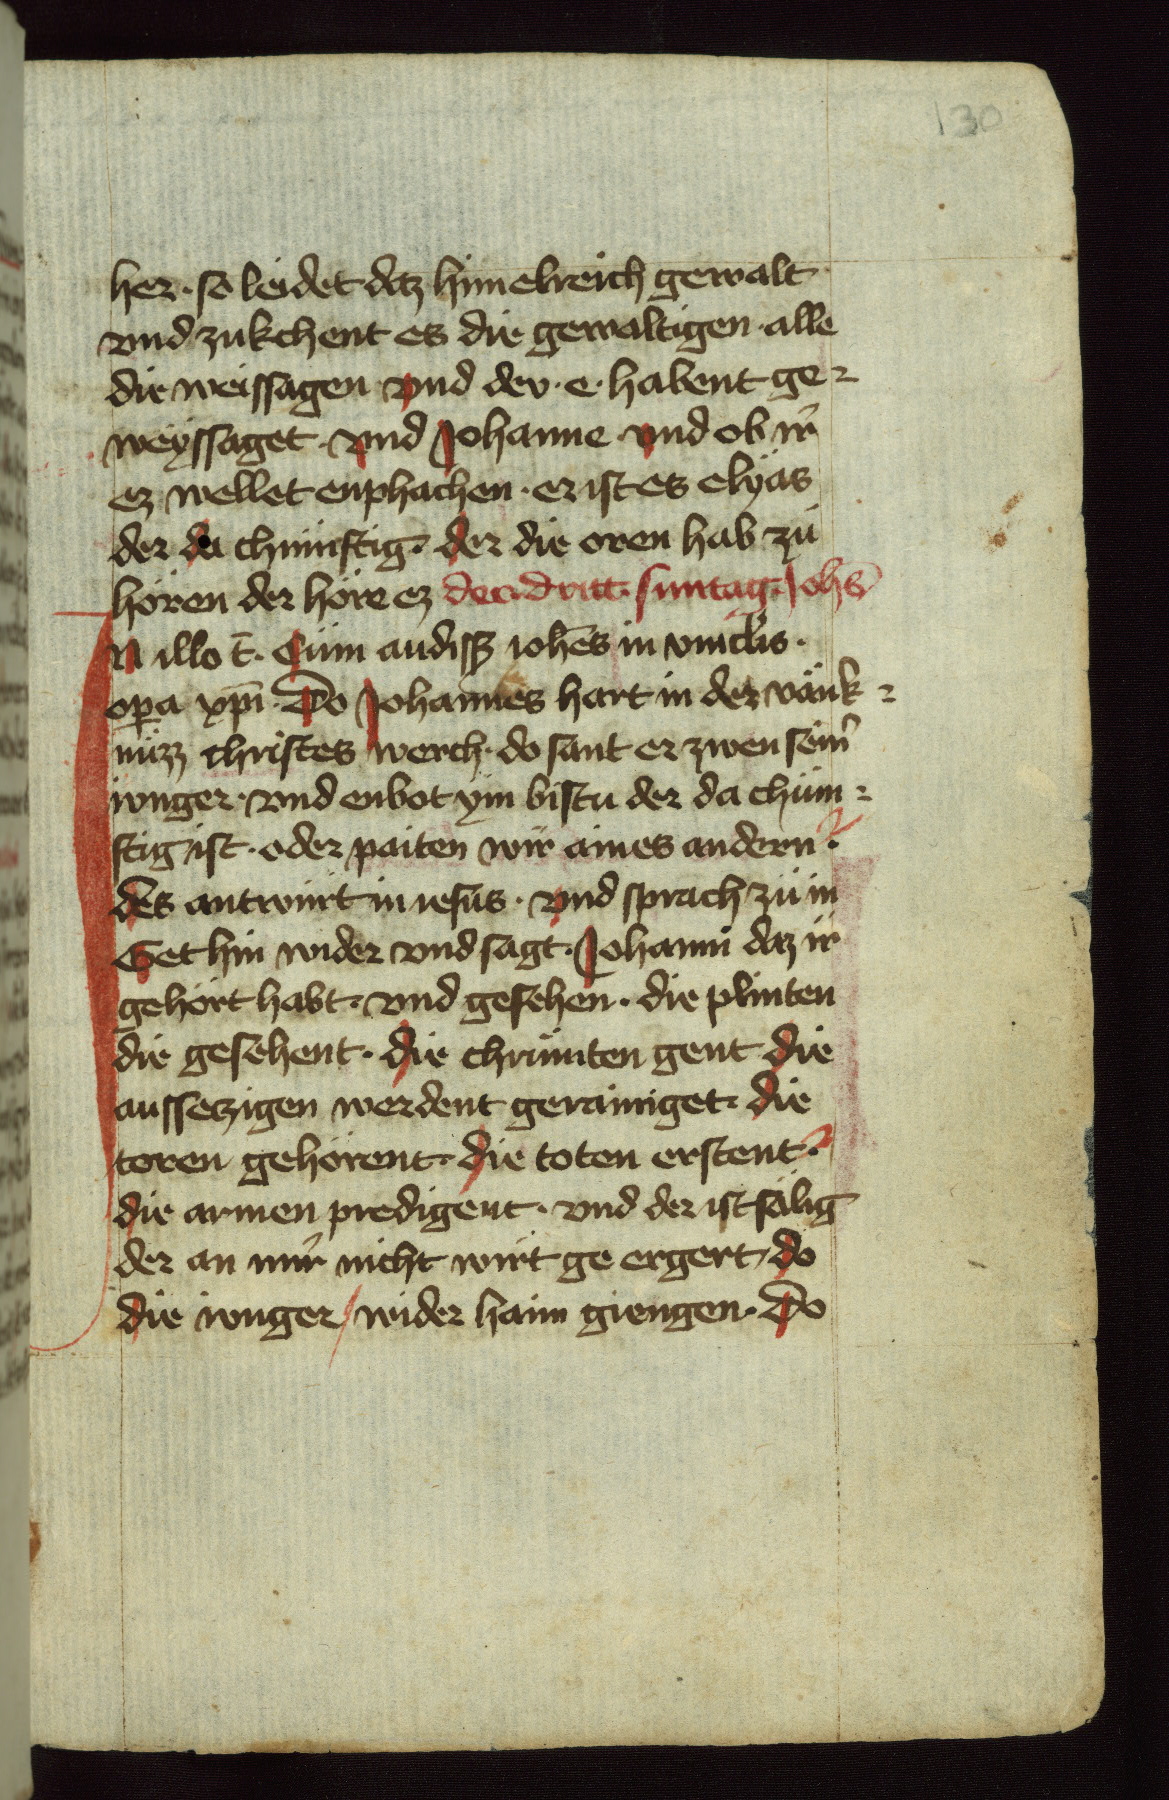 130
her · so leidet daz himelreich gewalt
vnd zukchent es die gewaltigen · alle
die weissagen vnd dev · e · habent ge-
weÿssaget · vnd Johanne vnd ob ir
ez wellet enphachen · er ist es elÿas
der da chünftig · der die oren hab zü
hören der höre ez der dritt suntag · Johs̄
In illo t̄ · Cum audiss; ioh̄es in vinclis ·
oꝑa xp̄i · Do Johannes hart in der vänk-
nüzz christes werch · do sant er zwen sein̄
iunger · vnd enbot ÿm bistu der da chüm-
ftig ist · oder paiten wir aines andern ·
des antwürt in iesus · vnd sprach zü in
Get hin wider vnd sagt · Johanni daz ir
gehört habt · vnd gesehen · die plinten
die gesehent · die chrumten gent die
aussezigen werdent gerainiget · die
toren gehörent · die toten erstent ·
die armen predigent · vnd der ist sälig
der an mir nicht wirt ge ergert · do
die iunger wider haim giengen · Do